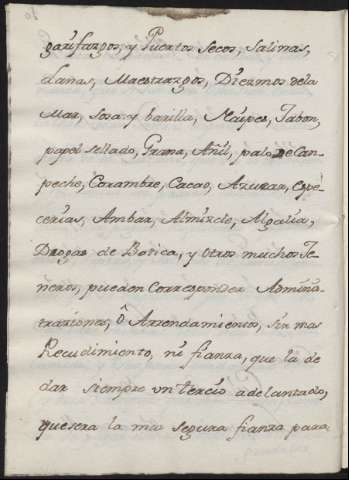 garifargos, y Puertos secos, Salinas,
Lanas, Maestrazgos, Diezmos dela
Mar, sosa y barilla, Naipes, Jabon,
papel sellado, Grana, Añil, palo de Can-
peche, Corambre, Cacao, Azucar, Espe-
cerias, Ambar, Almizcle, Algalia,
Drogas de Botica, y otros muchos Je-
neros, pueden corresponder Adminis-
traziones, ô Arrendamientos, sin mas
Recudimiento, ni fianza, que la de
dar siempre un tercio adelantado,
que sera la mas segura fianza para